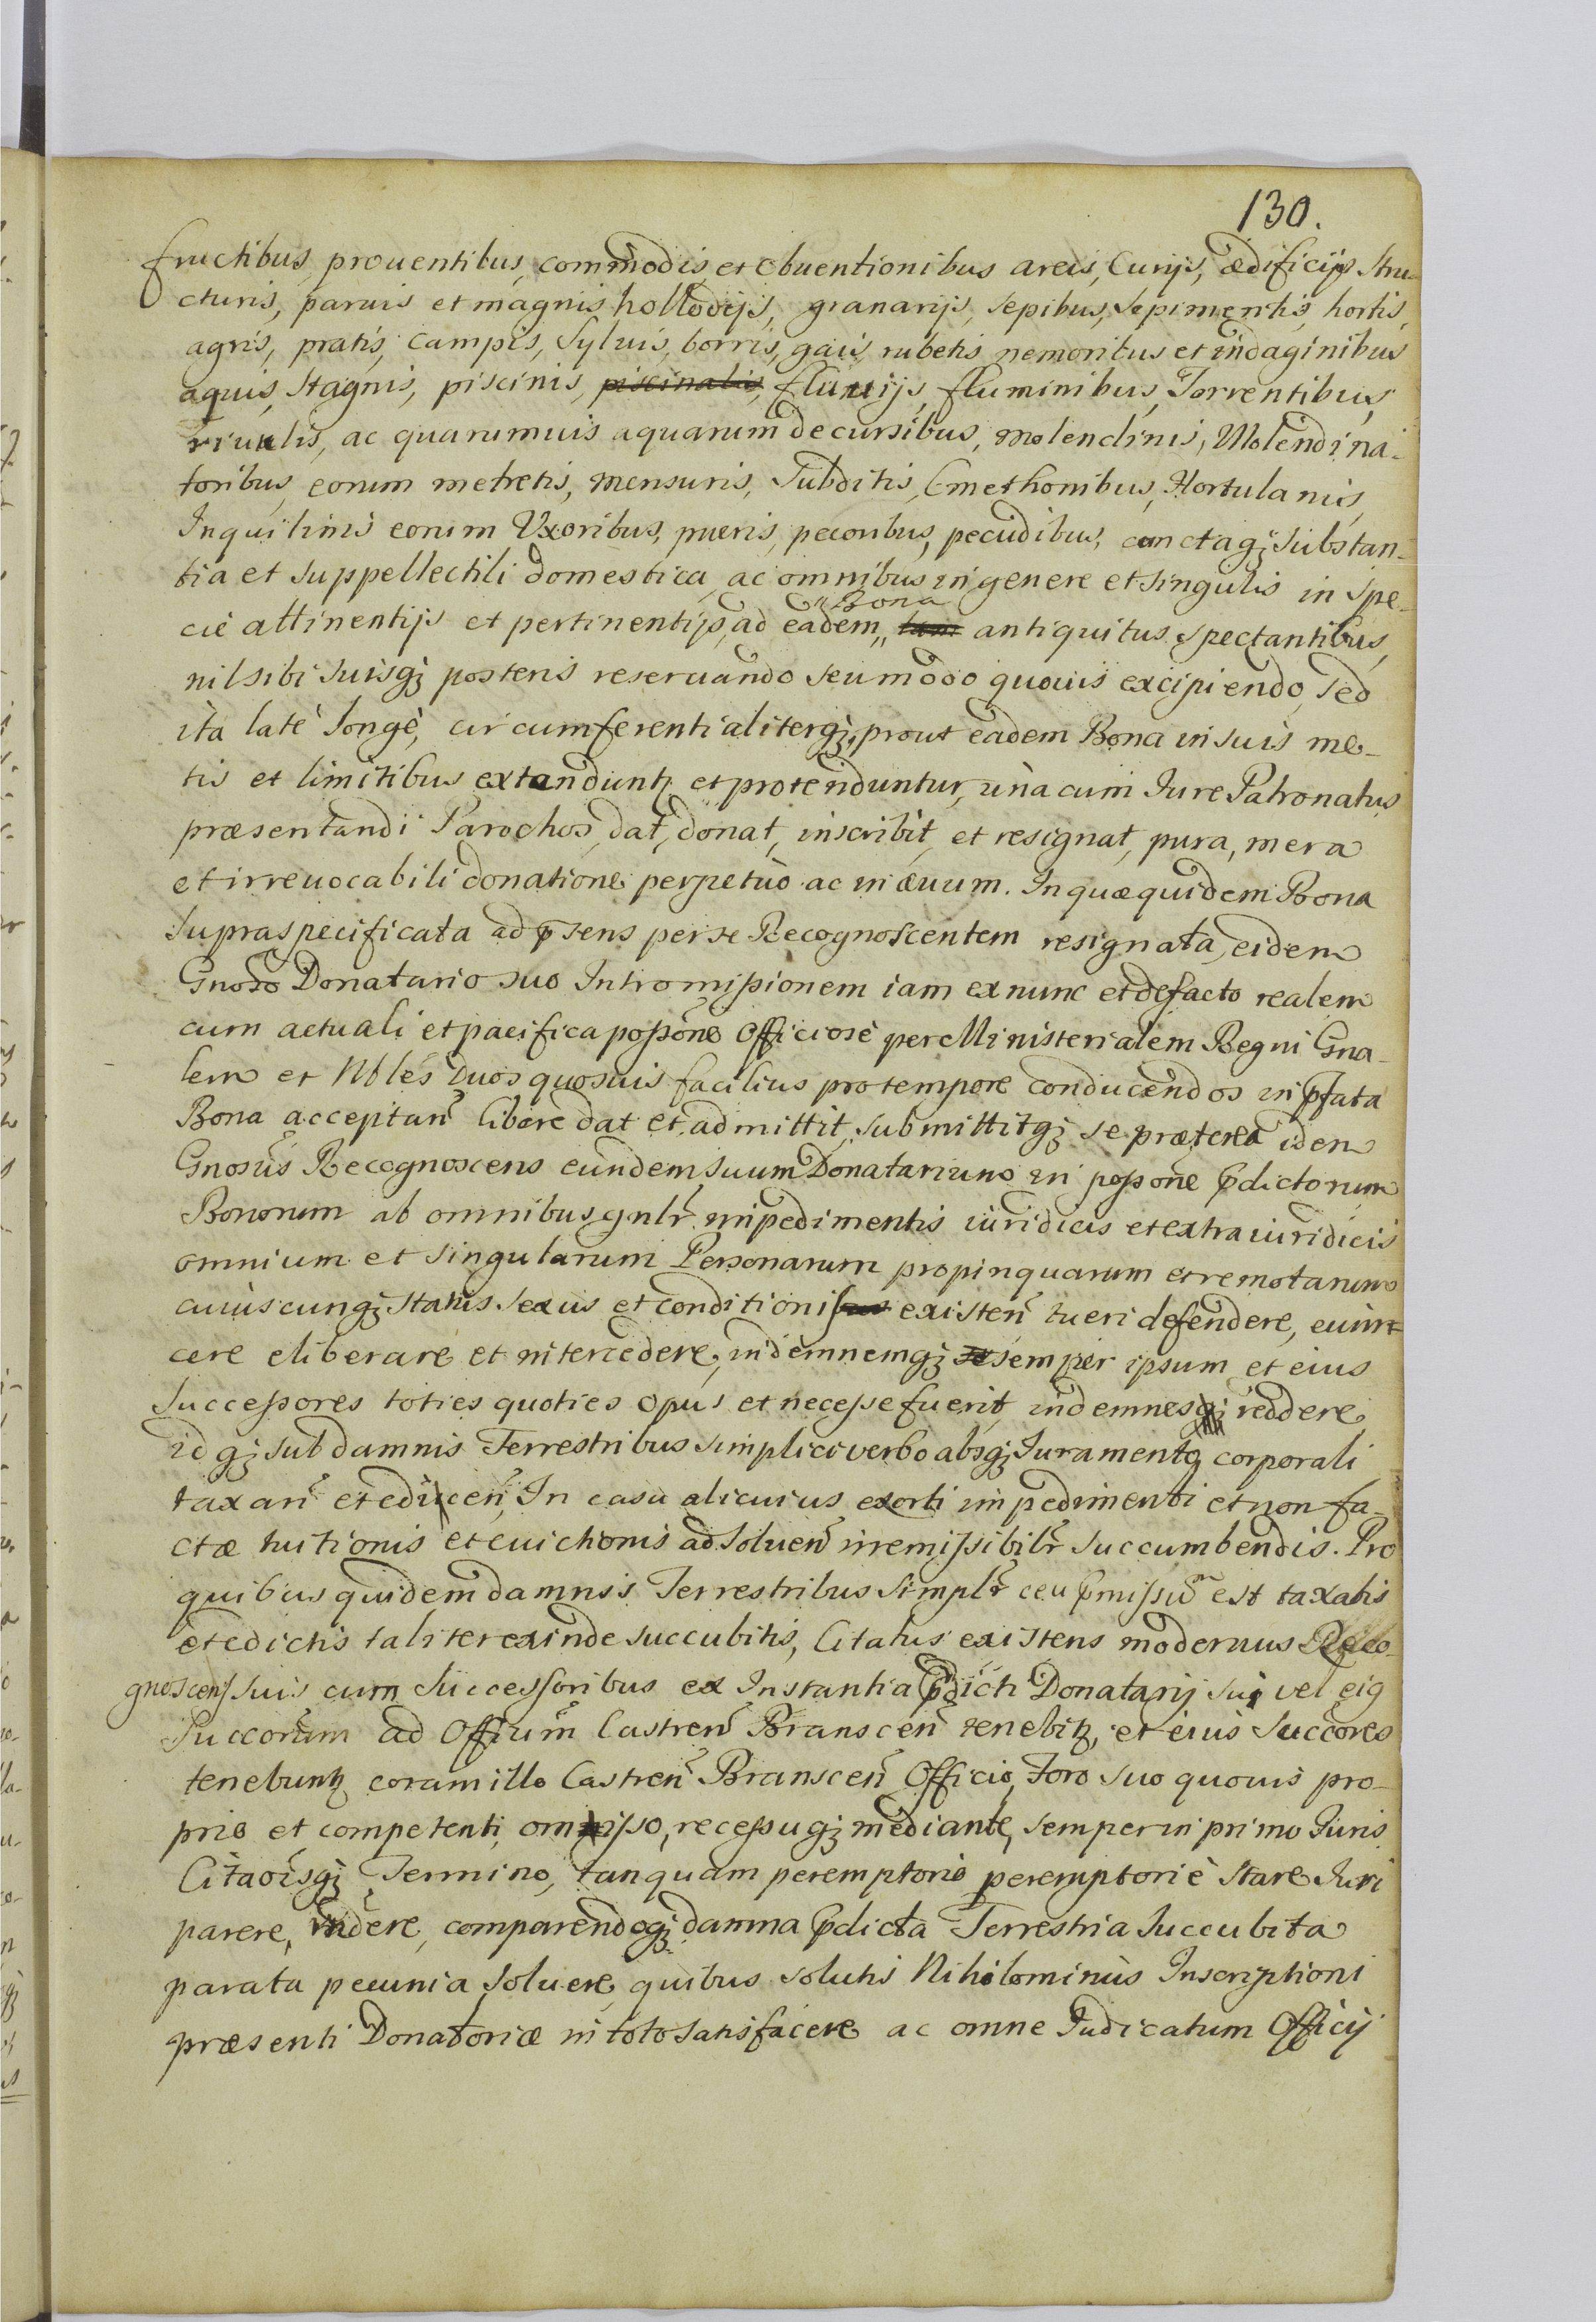 130.
fructibus, prouentibus, commodis et obuentionibus areis, Curijs, ædificijs Stru-
cturis, paruis et magnis hollodijs, granarijs, sepibus, sepimentis, hortis,
agris, pratis, Campis, Syluis, borris, gais, rubetis nemoribus et indaginibus
aquis, Stagnis, piscinis, piscinalis, fluuijs, fluminibus, Torrentibus,
riuulis, ac quarumuis aquarum decursibus, molendinis, Molendina-
toribus, eorum metretis, mensuris, Subditis, Cmethonibus, Hortulanis,
Inquilinis eorum Uxoribus, pueris, pecoribus, pecudibus, cunctaqȝ substan-
tia et suppellectili domestica, ac omnibus in genere et singulis in Spe-
cie attinentijs et pertinentijs, ad eadem „Bona tam antiquitus spectantibus,
nil sibi suisqȝ posteris reseruando seu modo quouis excipiendo, sed
ita latè longè, circumferentialiterqȝ, prout eadem Bona in suis me-
tis et limitibus extenduntȝ et protenduntur, unà cum Iure Patronatus
præsentandi Parochos, dat, donat, inscribit, et resignat, pura, mera
et irreuocabili donatione perpetuò ac in æuum. In quæ quidem Bona
supraspecificata ad p̃sens per se Recognoscentem resignata, eidem
Gnoso Donatario suo Intromissionem iam ex nunc et de facto realem
cum actuali et pacifica possõne Officiosè per Ministerialem Regni Gna-
lem et Nbles Duos quosuis facilius pro tempore conducendos in p̃fata
Bona acceptan̄ libere dat et admittit, submittitqȝ se præterea idem
Gnosus Recognoscens eundem suum Donatarium in possõne p̃dictorum
Bonorum ab omnibus gnlr̃ impedimentis iuridicis et extraiuridicis
omnium et singularum Personarum propinquarum et remotarum
cuiuscunqȝ status sexus et conditionis existen̄ tueri defendere, euin-
cere eliberare et intercedere, indemnemqȝ se semper ipsum et eius
Successores toties quoties opus et necesse fuerit, indemnesqȝ reddere
idqȝ sub damnis Terrestribus simplici verbo absqȝ Iuramento corporali
taxan̄ et edicen̄, In casu alicuius exorti impedimenti et non fa-
ctæ tuitionis et euictionis ad soluen̄ irremissibilr̃ succumbendis. Pro
quibus quidem damnis Terrestribus simplr̃ ceu p̃missum est taxatis
et edictis taliter exinde succubitis, Citatus existens modernus Reco-
gnoscens suis cum Successoribus ex Instantia p̃dicti Donatarij sui vel eiꝯ
Succorum ad Offium Castren̄ Branscen̄ tenebitȝ, et eius Succores
tenebuntȝ coram illo Castren̄ Branscen̄ Officio, Foro suo quouis pro-
prio et competenti omisso, recessuqȝ mediante, semper in primo Iuris
Citaõisqȝ Termino, tanquam peremptorio peremptoriè stare Iuri
parere, rn̄dere, comparendoqȝ damna p̃dicta Terrestria succubita
parata pecunia soluere, quibus solutis Nihilominùs Inscriptioni
præsenti Donatoriæ in toto satisfacere ac omne Iudicatum Officij